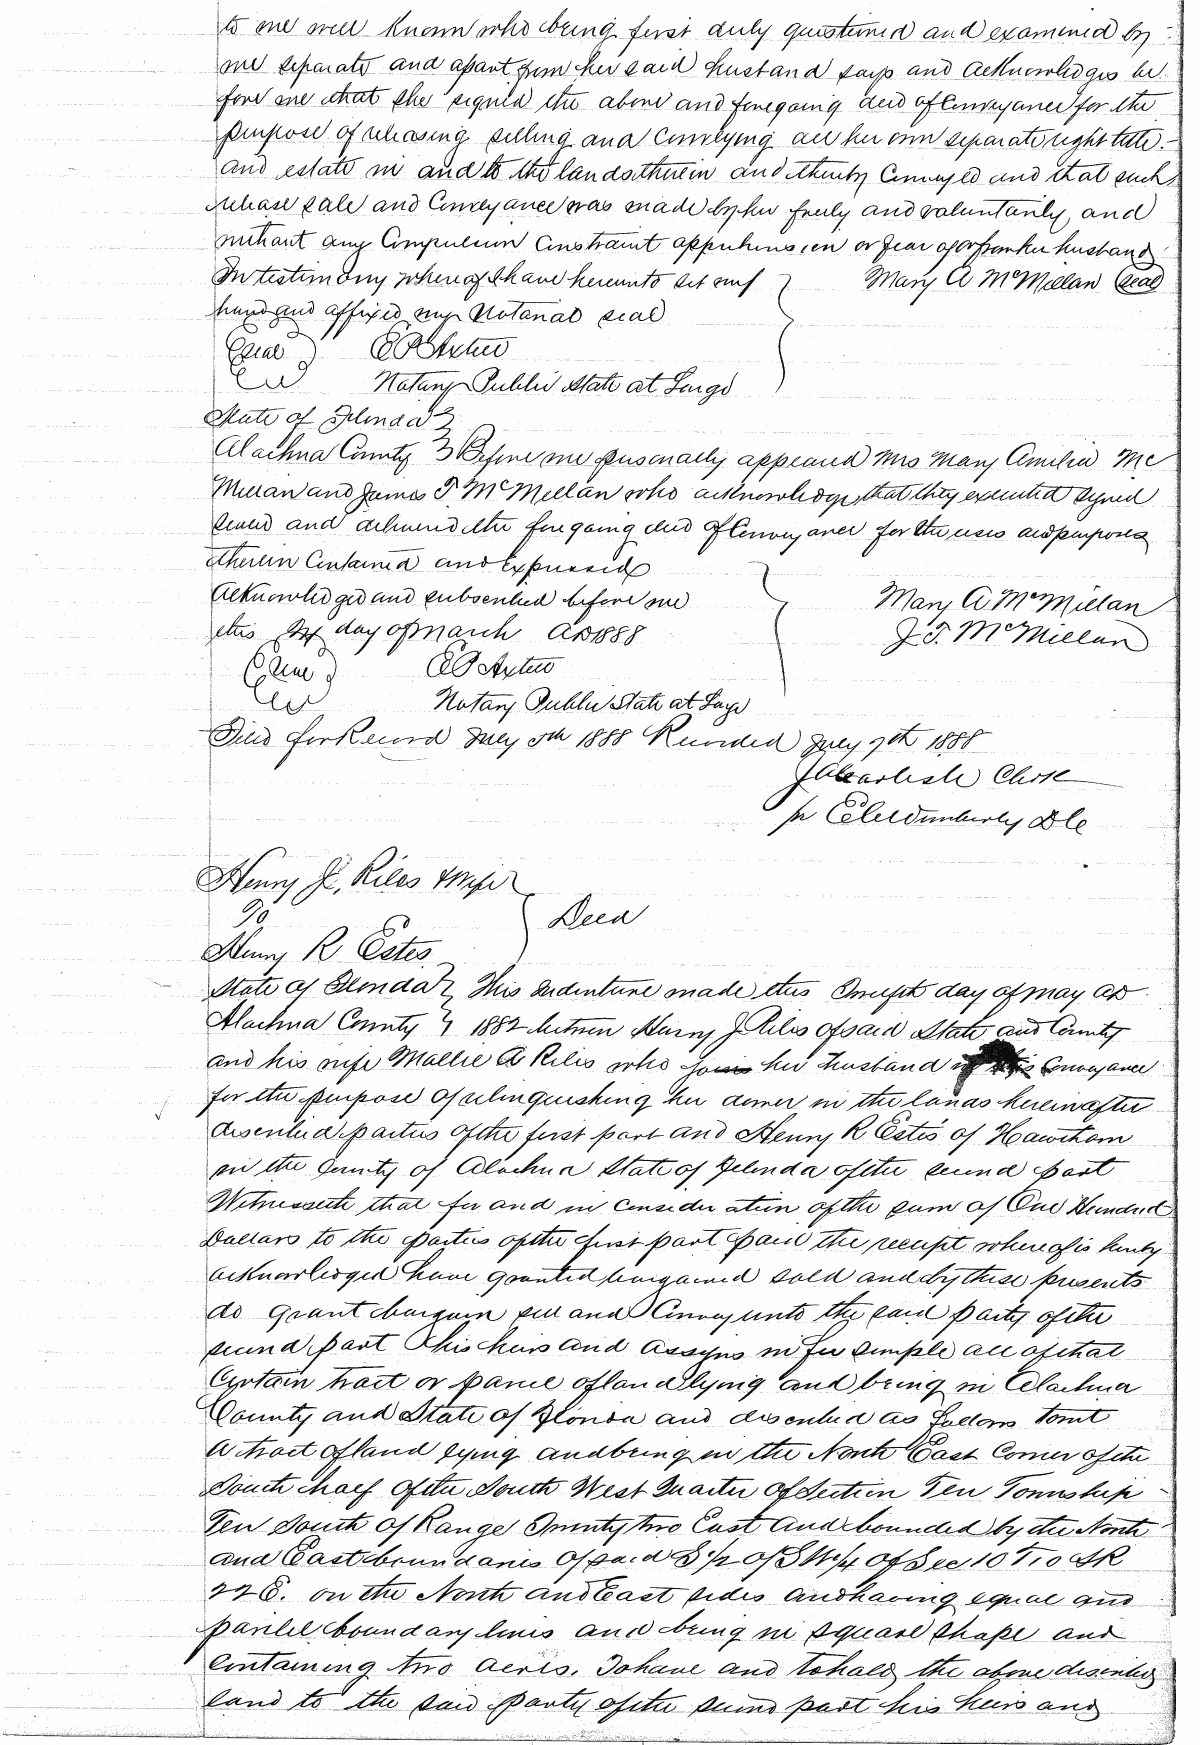 to me well known who being first duly questioned and examined by
me separate and apart from her said husband says and acknowledges be
fore me that she signed the above and foregoing deed of Conveyance for the
purpose of releasing selling and Conveying all her own separate right title
and estate in and to the lands therein and thereby Conveyed and that such
release sale and Conveyance was made by her freely and voluntarily, and
without any Compulsion Constraint apprehension or fear of or from her husband
In testimony whereof I have hereunto set my } Mary A McMillan (seal)
hand and affixed my Notarial seal
(Seal) E P Axtell
Notary Public State at Large
State of Florida }
Alachua County } Before me personally appeared Mrs Mary Amelia Mc
Millan and James T. McMillan who acknowledge that they executed signed
sealed and delivered the foregoing deed of Conveyance for the uses and purposes
therein Contained and expressed
Acknowledged and subscribed before me } Mary A McMillan
this day of March AD 1888 J. T. McMillan
(Seal) E P Axtell
Notary Public State at Large
Filed for Record July 5th 1888 Recorded July 7th 1888
J A Carlisle Clerk
pr Wimberly D C
Henry J. Riles & wife
To } Deed
Henry R Estes
State of Florida } This Indenture made this Twelfth day of May AD
Alachua County } 1882 between Henry J. Riles of said State and County
and his wife Mallie A Riles who joins her husband in this Conveyance
for the purpose of relinquishing her dower in the lands hereinafter
described parties of the first part and Henry R Estes of Hawthorn
in the County of Alachua State of Florida of the second part
Witnesseth that for and in consideration of the sum of One Hundred
Dollars to the parties of the first part paid the receipt whereof is hereby
acknowledged have granted bargained sold and by these presents
do grant bargain sell and Convey unto the said party of the
second part his heirs and assigns in fee simple all of that
Certain tract or parcel of land lying and being in Alachua
County and State of Florida and described as follows towit
A tract of land lying and being in the North East Corner of the
South half of the South West Quarter of Section Ten Township
Ten South of Range Twenty two East and bounded by the North
and East boundaries of said S 1/2 of S W 1/4 of Sec 10 T 10 S R
22 E. on the North and East sides and having equal and
parilel boundary lines and being in square shape and
Containing two acres. To have and to hold the above described
land to the said party of the second part his heirs and